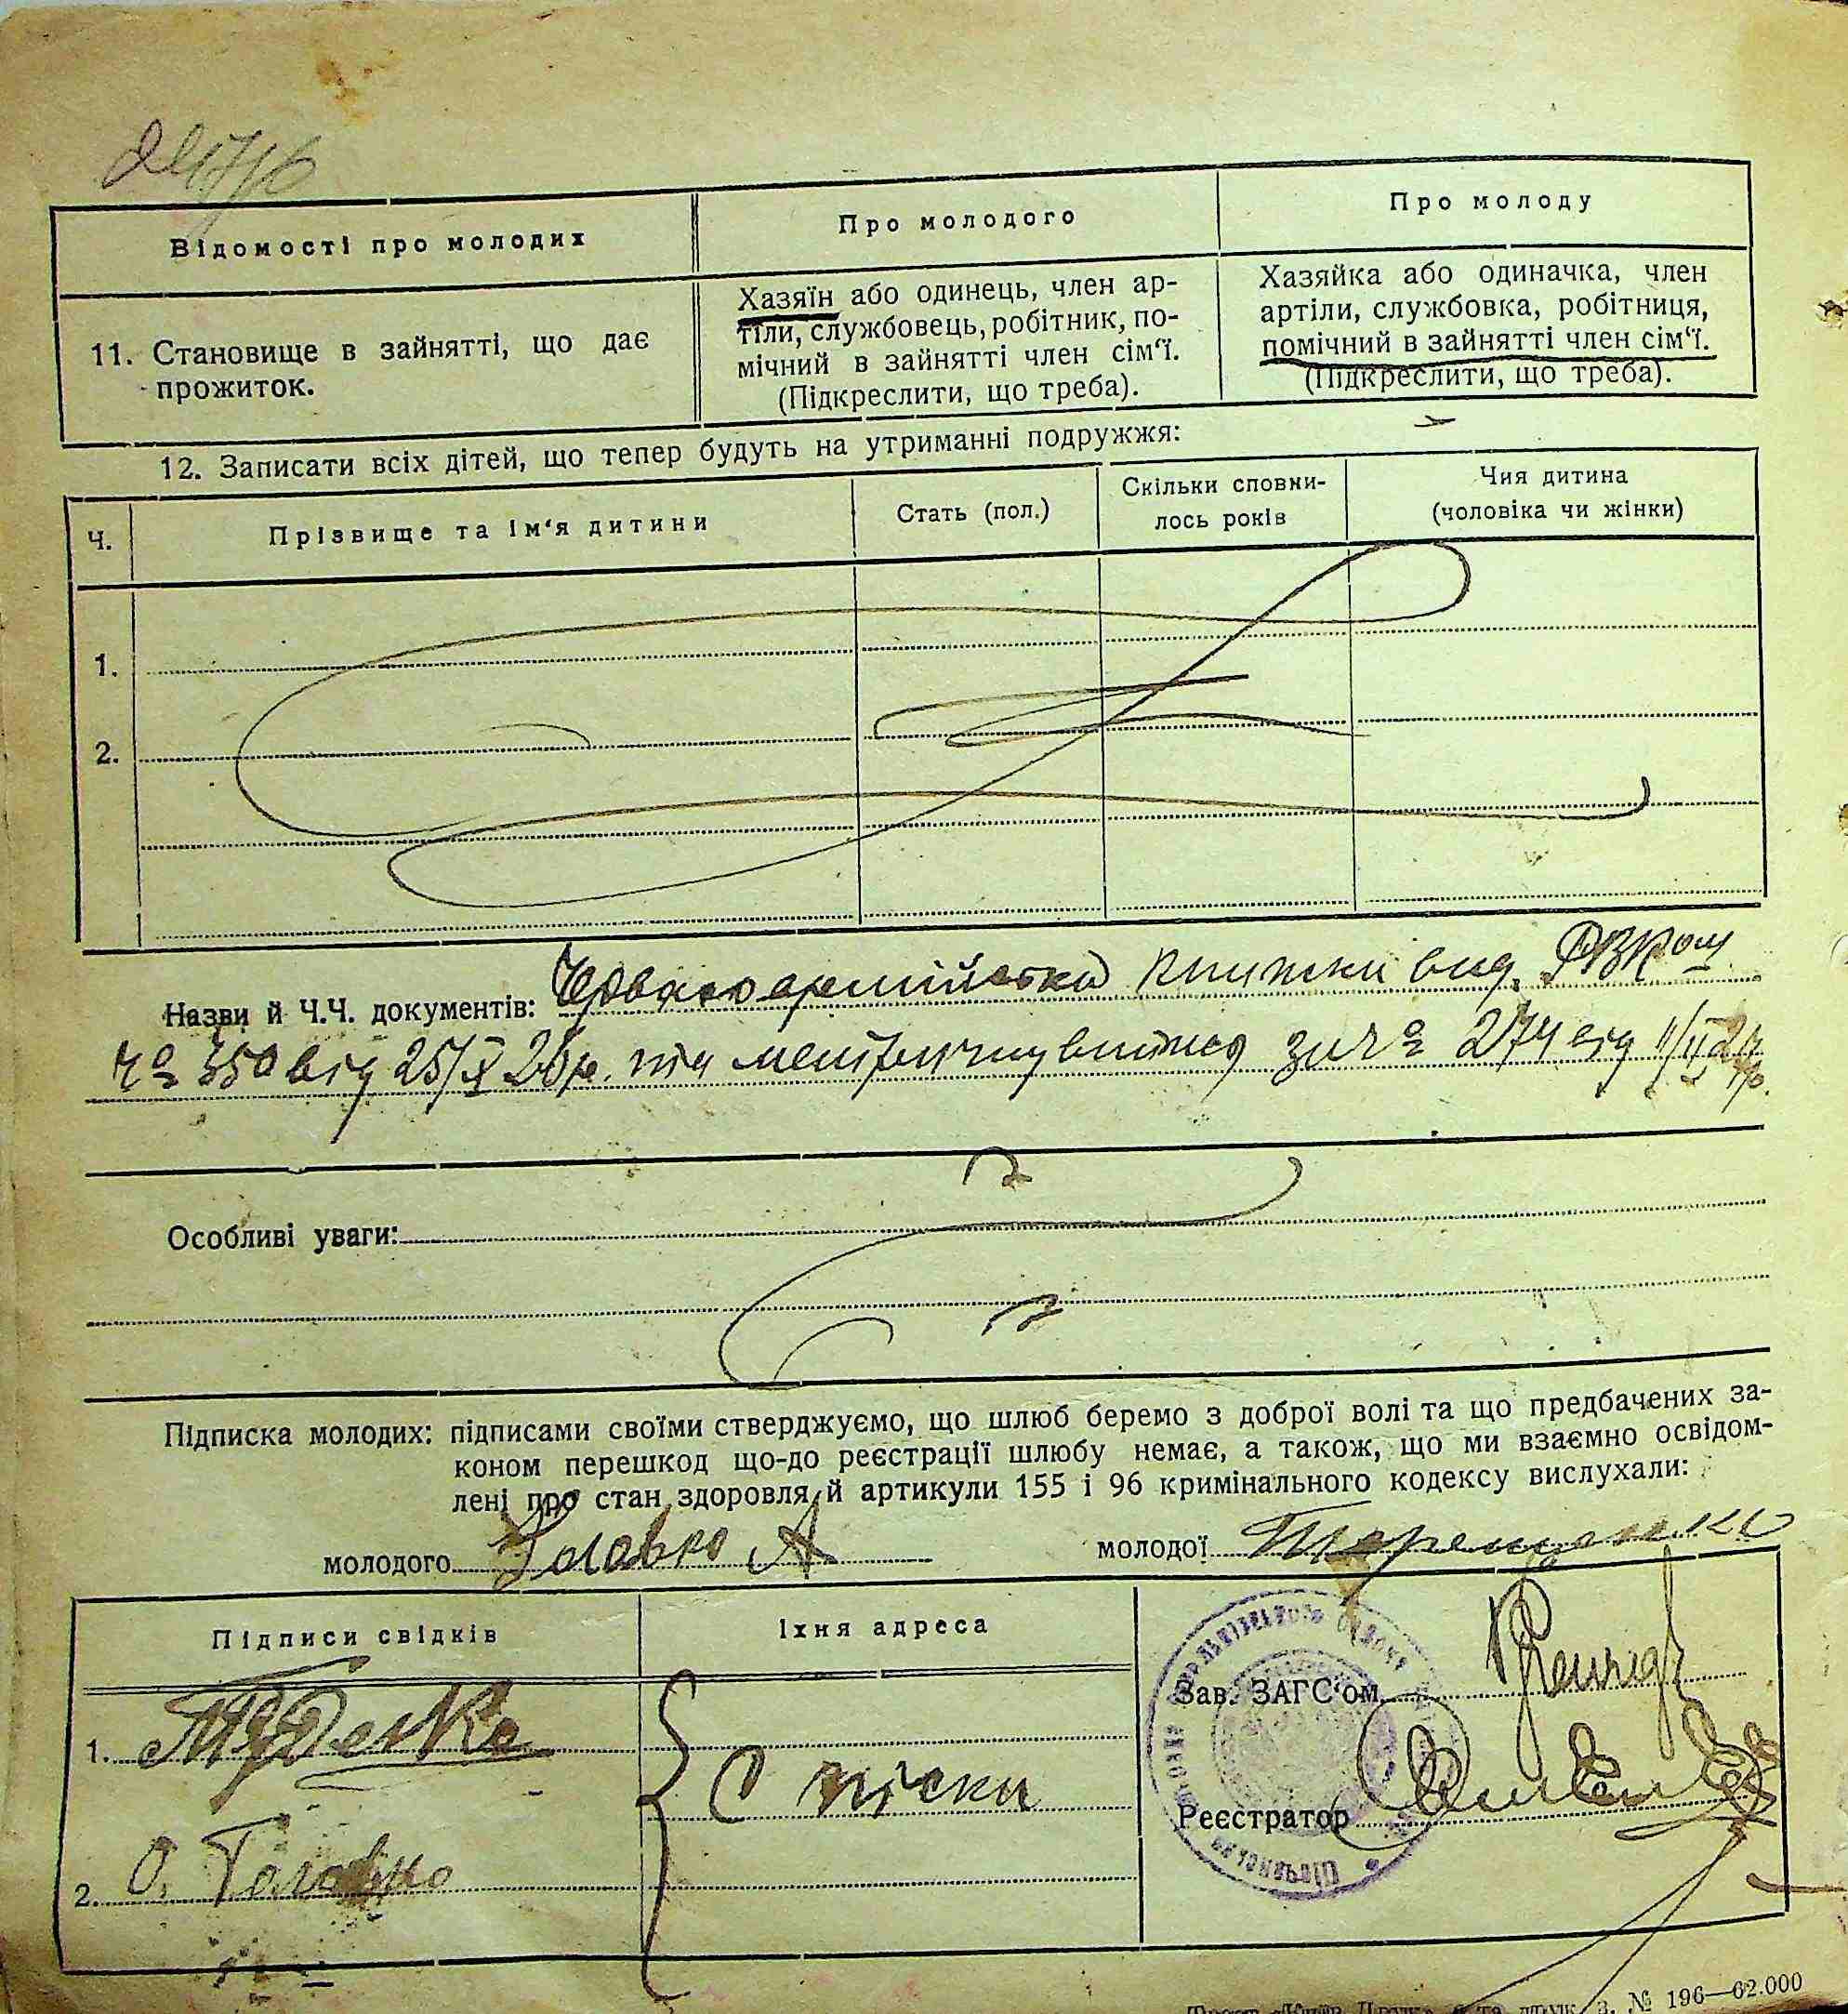 Відомості про молодих
Про молодого
Про молоду
11. Становище в зайнятті, що дає
прожиток.
Хазяїн або одинець, член ар-
тіли, службовець, робітник, по-
мічний в зайнятті член сім'ї.
(Підкреслити, що треба).
Хазяйка або одиначка, член
артіли, службовка, робітниця,
помічний в зайнятті член сім'ї.
(Підкреслити, що треба).
12. Записати всіх дітей, що тепер будуть на утриманні подружжя:
Ч.
Прізвище та ім'я дитини
Стать (пол.)
Скільки сповни-
лось років
Чия дитина
(чоловіка чи жінки)
1.
2.
Назви й Ч.Ч. документів: Червоноармійська книжка вид. РВКом
ч° 350 від 25/X 26р. та метричну виписа за ч° 274 від 11/II 27р.
Особливі уваги:
Підписка молодих: підписами своїми стверджуємо, що шлюб беремо з доброї волі та що предбачених за-
коном перешкод що-до реєстрації шлюбу немає, а також, що ми взаємно освідом-
лені про стан здоровля й артикули 155 і 96 кримінального кодексу вислухали:
молодого Головко А
молодої Терещенко
Підписи свідків
Їхня адреса
Зав. ЗАГС'ом
1.
С Піски
Реєстратор
2. О. Головко
З. № 196—62.000